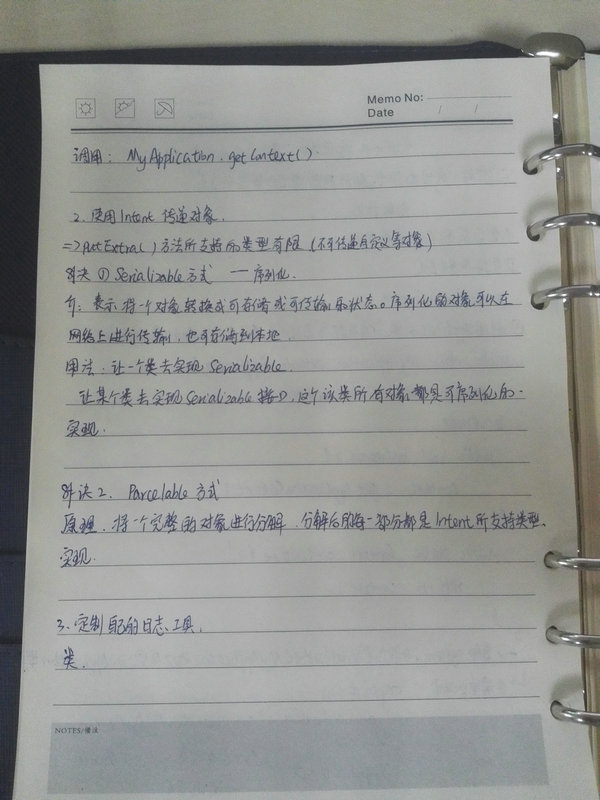 Memo No:
Date / /
调用: MyApplication.getContext().
2. 使用Intent 传递对象.
=> putExtra()方法所支持的类型有限 (不可传递自定义等对象)
解决① Serializable 方式 —— 序列化.
介: 表示将一个对象转换成可存储或可传输的状态。序列化的对象可以在
网络上进行传输, 也可存储到本地.
用法: 让一个类去实现 Serializable.
让某个类去实现 Serializable 接口, 这个该类所有对象都是可序列化的.
实现.
解决2. Parcelable 方式
原理. 将一个完整的对象进行分解. 分解后的每一部分都是 Intent 所支持类型.
实现.
3、定制自己的日志工具.
类.
NOTES/備注